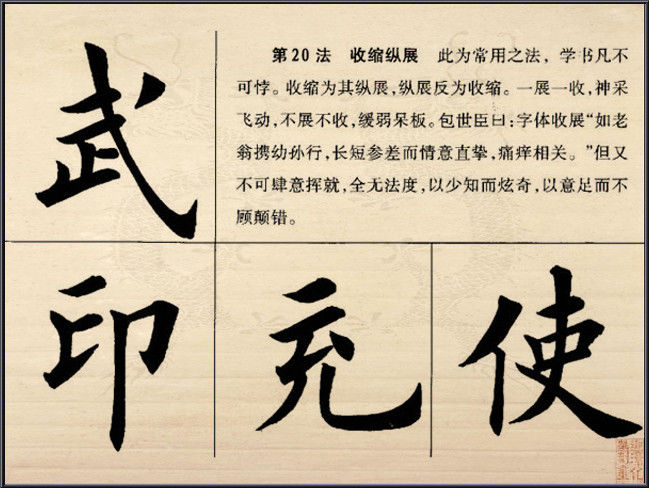 武
第20法 收缩纵展 此为常用之法，学书凡不
可悖。收缩为其纵展，纵展反为收缩。一展一收，神采
飞动，不展不收，缓弱呆板。包世臣曰：字体收展“如老
翁携幼孙行，长短参差而情意直挚，痛痒相关。”但又
不可肆意挥就，全无法度，以少知而炫奇，以意足而不
顾颠错。
印 充 使